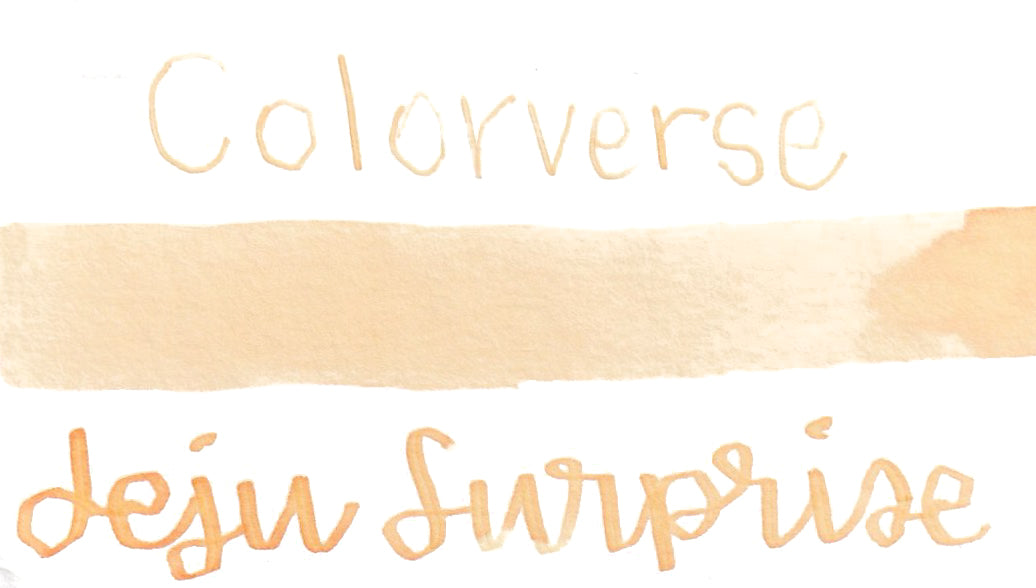 Colorverse
deju Surprise